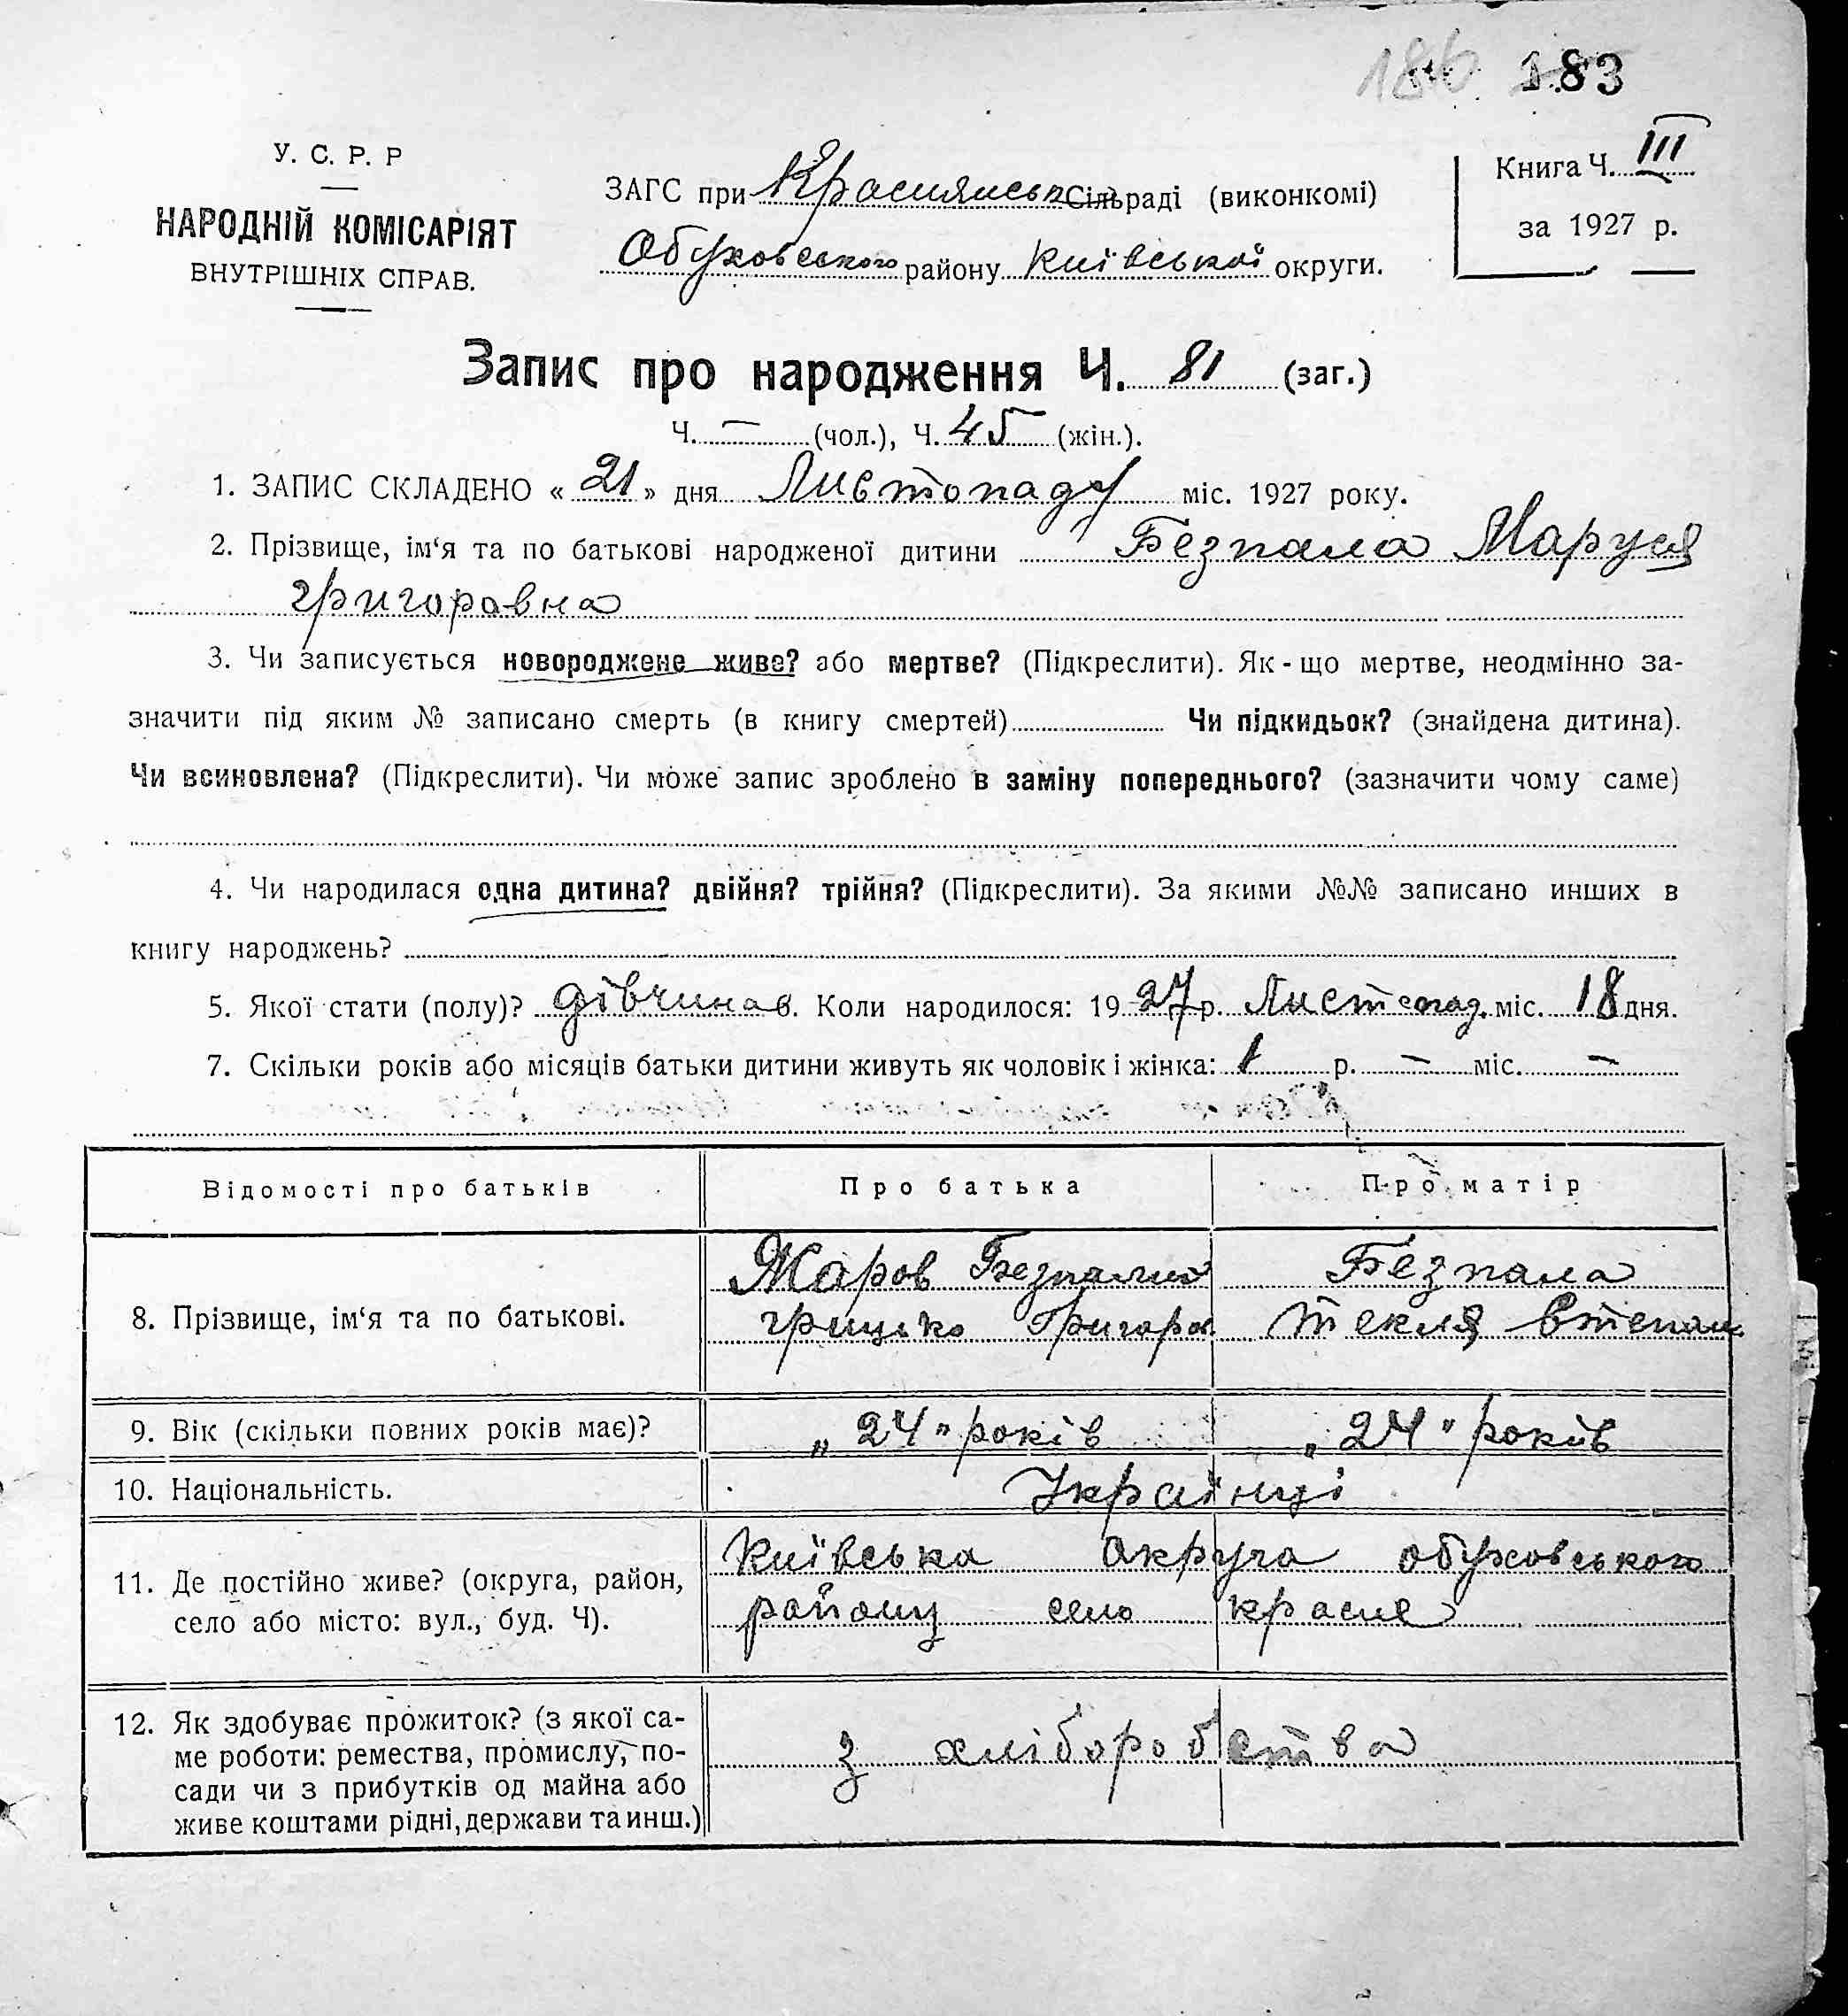 186 183
У. С. Р. Р
НАРОДНІЙ КОМІСАРІЯТ
ВНУТРІШНІХ СПРАВ.
ЗАГС при Краснянськ Сільраді (виконкомі)
Обуховського району Київської округи.
Книга Ч. III
за 1927 р.
Запис про народження Ч. 81 (заг.)
Ч. — (чол.), Ч. 45 (жін.).
1. ЗАПИС СКЛАДЕНО « 21 » дня Листопаду міс. 1927 року.
2. Прізвище, ім‘я та по батькові народженої дитини Безпала Маруся
григоровна
3. Чи записується новороджене живе? або мертве? (Підкреслити). Як - що мертве, неодмінно за-
значити під яким № записано смерть (в книгу смертей) Чи підкидьок? (знайдена дитина).
Чи всиновлена? (Підкреслити). Чи може запис зроблено в заміну попереднього? (зазначити чому саме)
4. Чи народилася одна дитина? двійня? трійня? (Підкреслити). За якими №№ записано инших в
книгу народжень?
5. Якої стати (полу)? дівчина 6. Коли народилося: 1927 р. Листопад. міс. 18 дня.
7. Скільки років або місяців батьки дитини живуть як чоловік і жінка: 1 р. — міс. —
Відомості про батьків Про батька Про матір
8. Прізвище, ім‘я та по батькові.
Жаров Безпалий
грицько Григоров.
Безпала
текля Степан.
9. Вік (скільки повних років має)? „ 24 " років „ 24 " років
10. Національність. Українці
11. Де постійно живе? (округа, район,
село або місто: вул., буд. Ч).
Київська округа обуховського
району село красне
12. Як здобуває прожиток? (з якої са-
ме роботи: ремества, промислу, по-
сади чи з прибутків од майна або
живе коштами рідні, держави та инш.)
з хліборобства